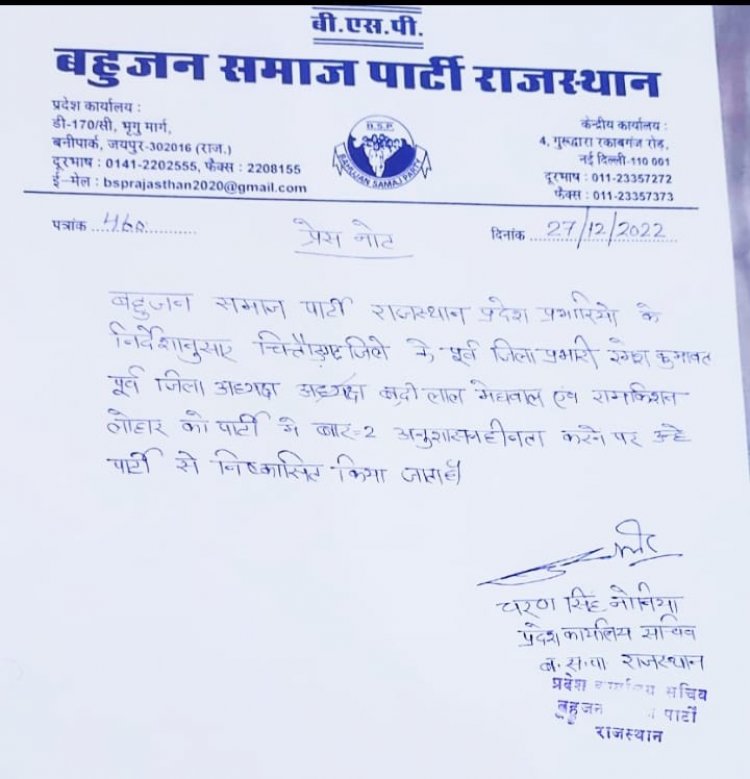 बी.एस.पी.
बहुजन समाज पार्टी राजस्थान
प्रदेश कार्यालय :
डी-170/सी, भृगु मार्ग,
बनीपार्क, जयपुर-302016 (राज.)
दूरभाष : 0141-2202555, फैक्स : 2208155
ई-मेल : bsprajasthan2020@gmail.com
B.S.P.
BAHUJAN SAMAJ PARTY
केन्द्रीय कार्यालय :
4, गुरूद्वारा रकाबगंज रोड,
नई दिल्ली-110 001
दूरभाष : 011-23357272
फैक्स : 011-23357373
पत्रांक 460
प्रेस नोट
दिनांक 27/12/2022
बहुजन समाज पार्टी राजस्थान प्रदेश प्रभारियो के
निर्देशानुसार चित्तौड़गढ़ जिले के पूर्व जिला प्रभारी रमेश कुमावत
पूर्व जिला अध्यक्ष बद्री लाल मेघवाल एवं रामकिशन
लोहार को पार्टी मे बार-2 अनुशासनहीनता करने पर उन्हे
पार्टी से निष्कासित किया जाता है।
चरण सिंह
प्रदेश कार्यालय सचिव
ब.स.पा राजस्थान
प्रदेश कार्यालय सचिव
बहुजन पार्टी
राजस्थान